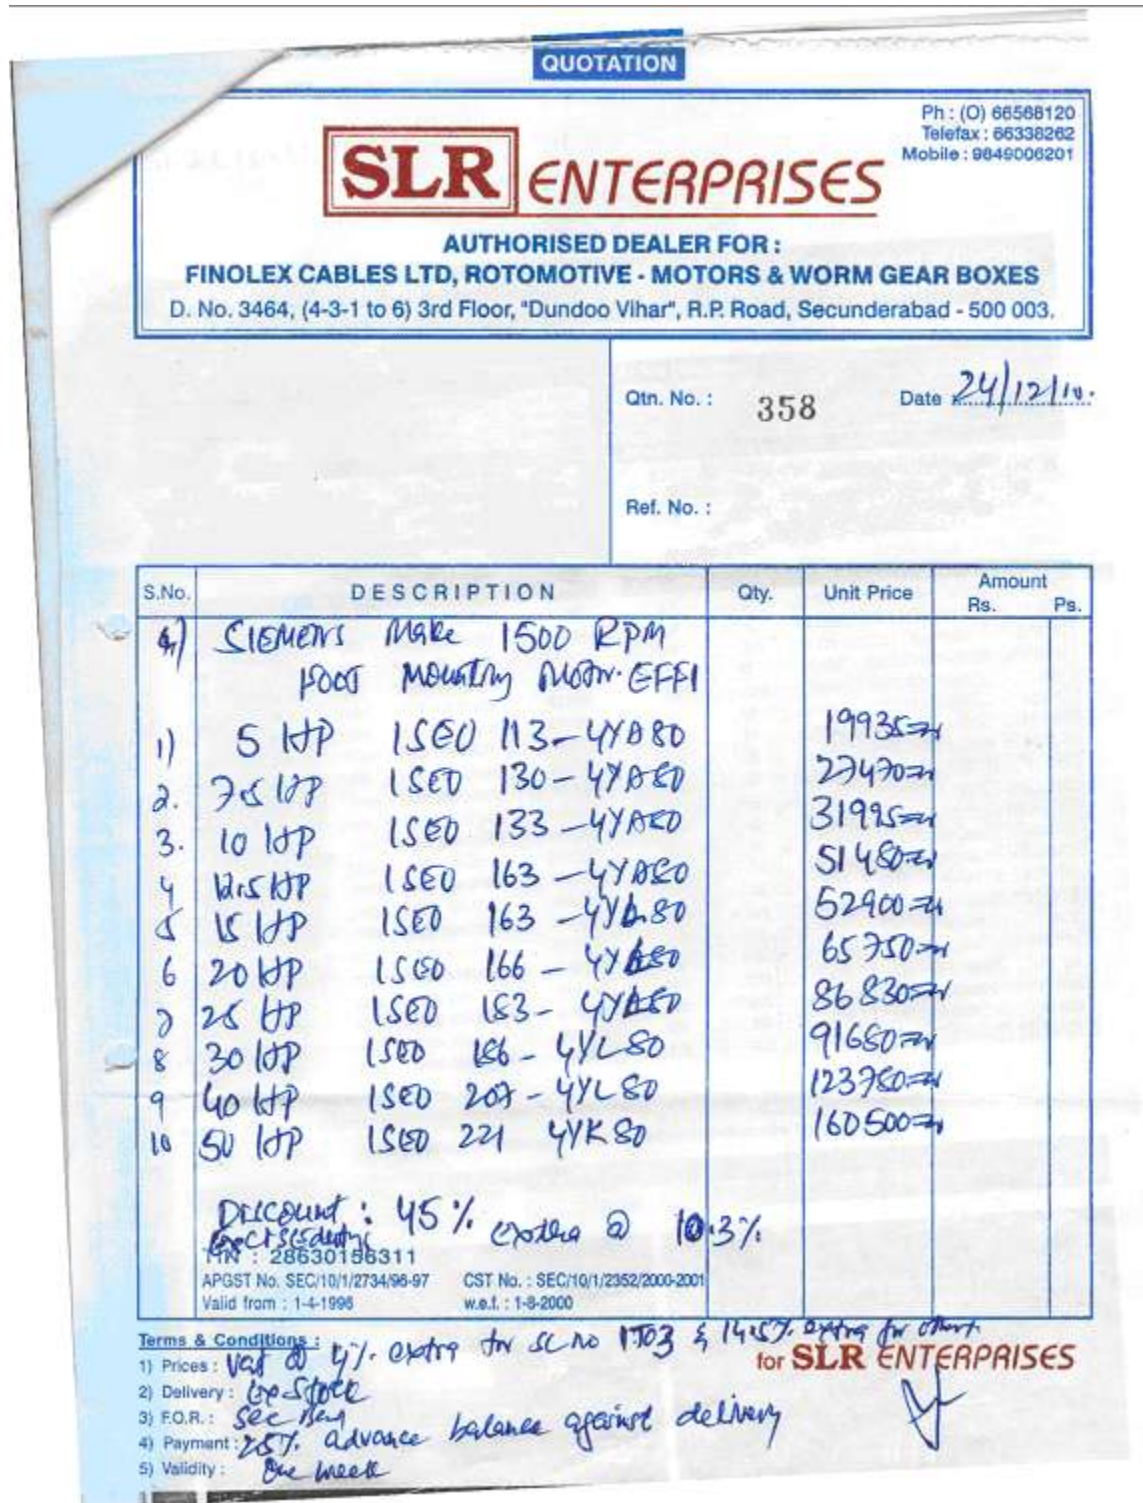 QUOTATION
Ph : (O) 66568120
Telefax : 66338262
Mobile : 9849006201
SLR ENTERPRISES
AUTHORISED DEALER FOR :
FINOLEX CABLES LTD, ROTOMOTIVE - MOTORS & WORM GEAR BOXES
D. No. 3464, (4-3-1 to 6) 3rd Floor, "Dundoo Vihar", R.P. Road, Secunderabad - 500 003.
Qtn. No. : 358 Date 24/12/10.
Ref. No. :
S.No. DESCRIPTION Qty. Unit Price Amount
Rs. Ps.
SIEMENS Make 1500 RPM
Foot Mounting Motor. EFF1
1) 5 HP 1SEO 113-4YA80 19935=
2. 7.5 HP 1SEO 130-4YA80 27470=
3. 10 HP 1SEO 133-4YA80 31995=
4 12.5 HP 1SEO 163-4YA80 51480=
5 15 HP 1SEO 163-4Y 80 52900=
6 20 HP 1SEO 166- 65750=
7 25 HP 1SEO 183- 86830=
8 30 HP 1SEO 186-4YL80 91680=
9 40 HP 1SEO 207-4YL80 123780=
10 50 HP 1SEO 221 4YK80 160500=
Discount : 45%
extra @ 10.3%
TIN : 28630156311
APGST No. SEC/10/1/2734/96-97 CST No. : SEC/10/1/2352/2000-2001
Valid from : 1-4-1996 w.e.f. : 1-8-2000
Terms & Conditions :
1) Prices : Vat @ 4% extra for SL no 1TO3 & 14.5% extra for others.
for SLR ENTERPRISES
2) Delivery : Ex-Stock
3) F.O.R. : Sec
4) Payment : 25% advance balance against delivery
5) Validity : One week